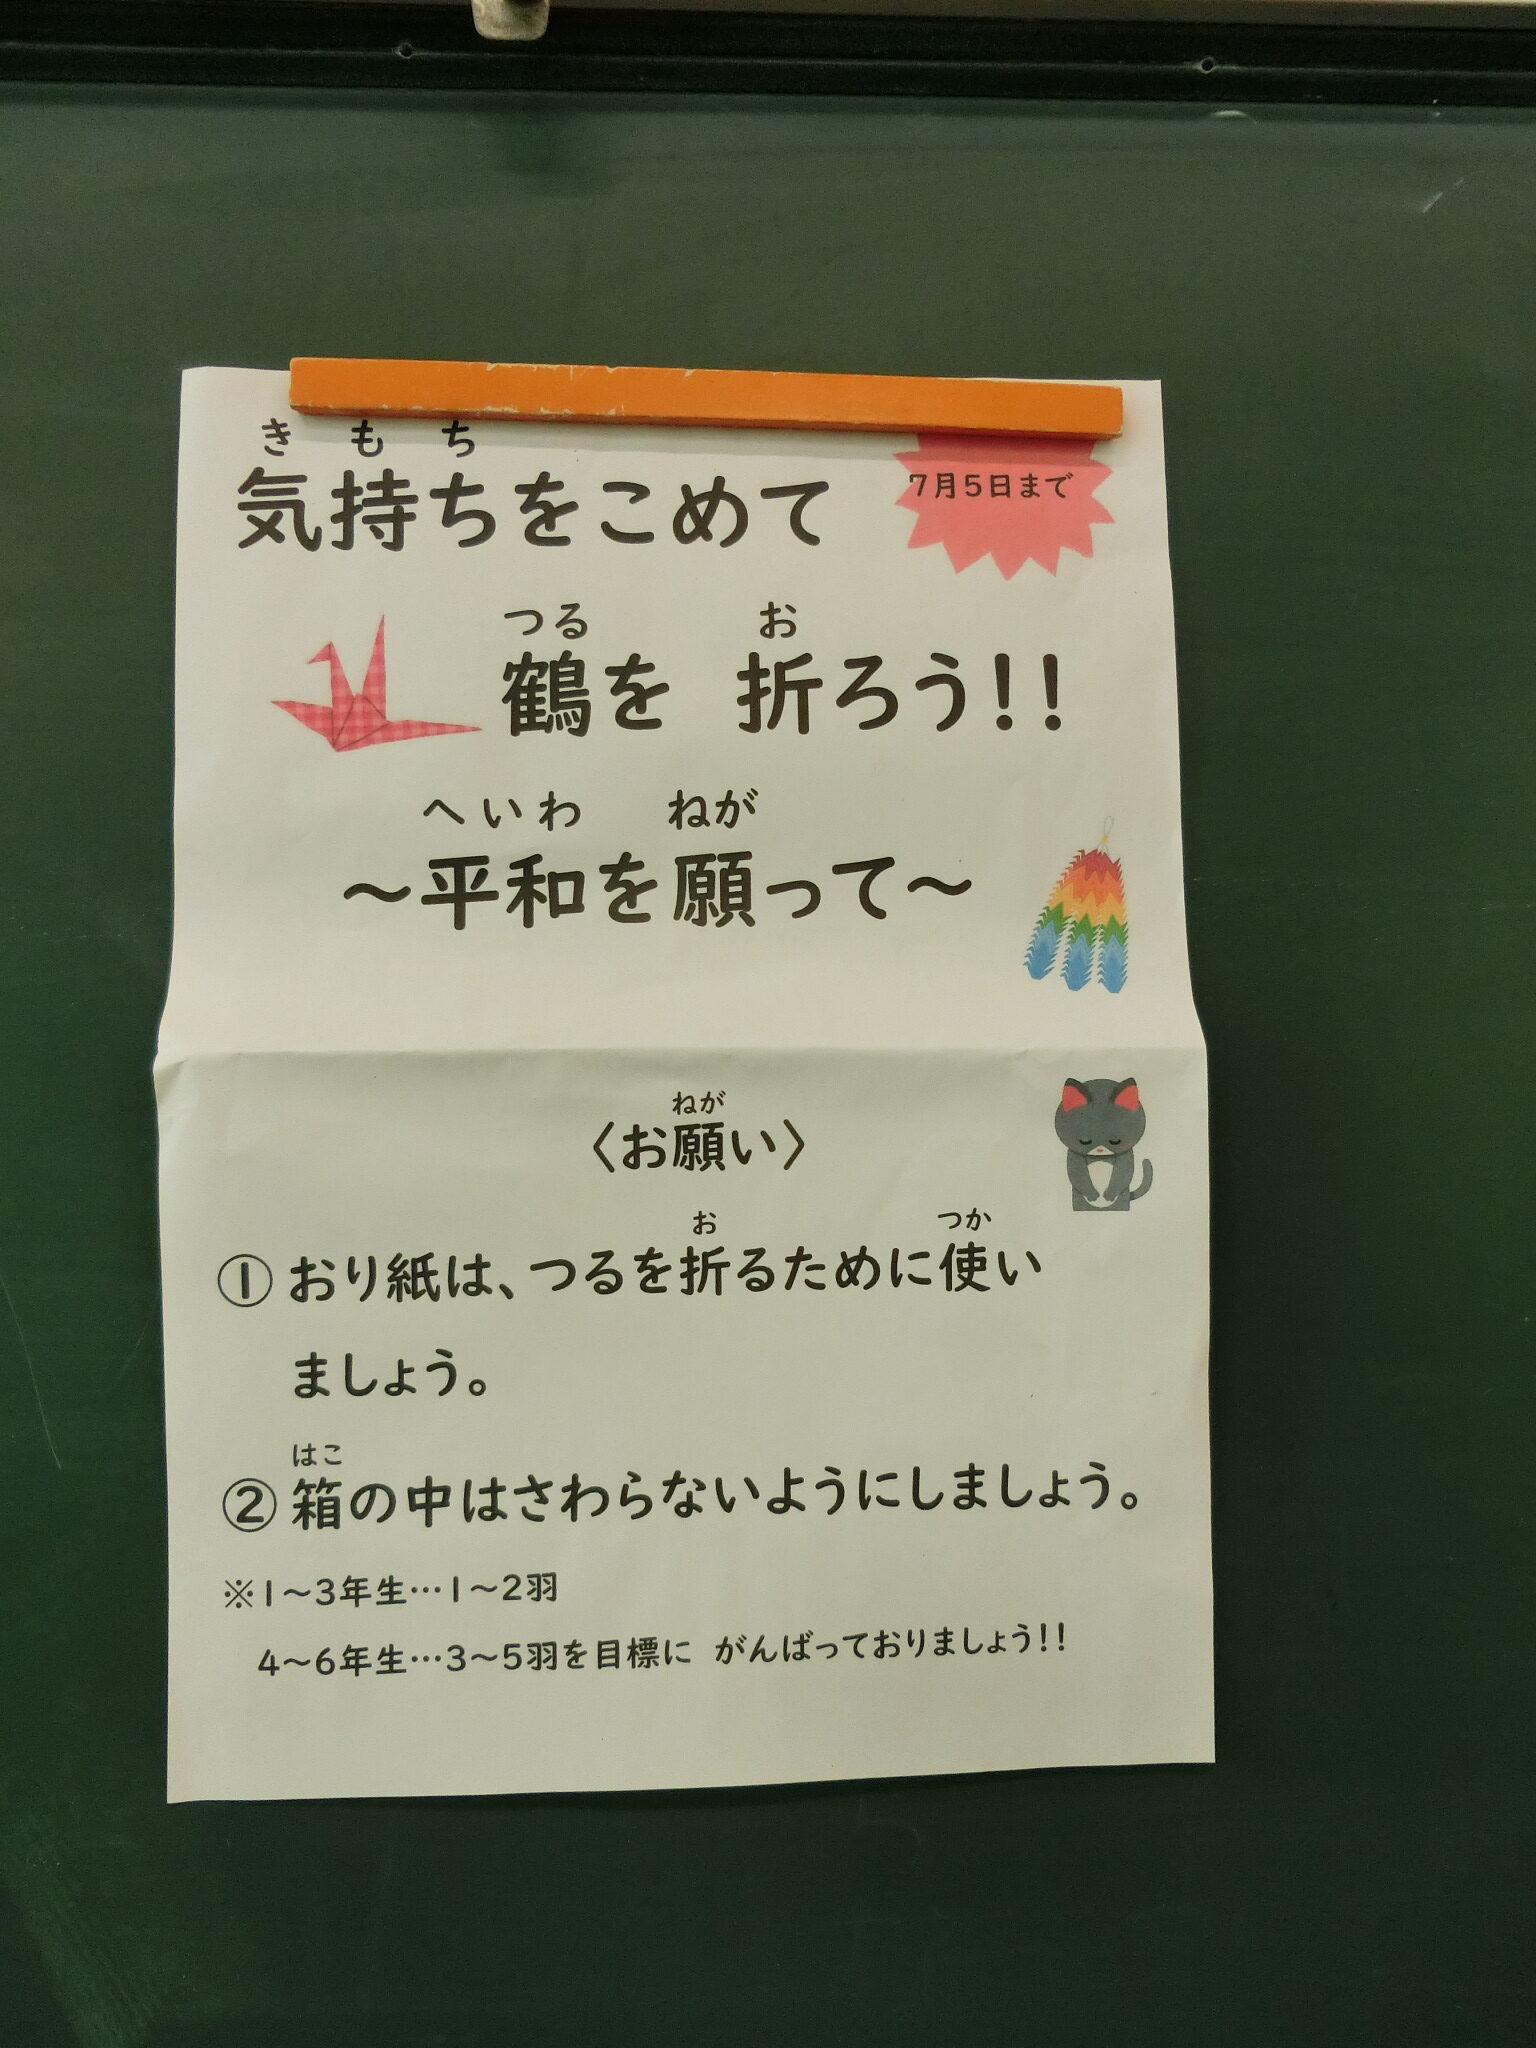 きもち
気持ちをこめて
7月5日まで
つる お
鶴を 折ろう!!
へいわ ねが
～平和を願って～
ねが
〈お願い〉
お つか
①おり紙は、つるを折るために使い
ましょう。
はこ
②箱の中はさわらないようにしましょう。
※1～3年生…1～2羽
4～6年生…3～5羽を目標に がんばっておりましょう!!